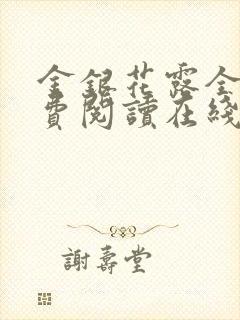 金銀花露全
費閱讀在綫
謝壽堂